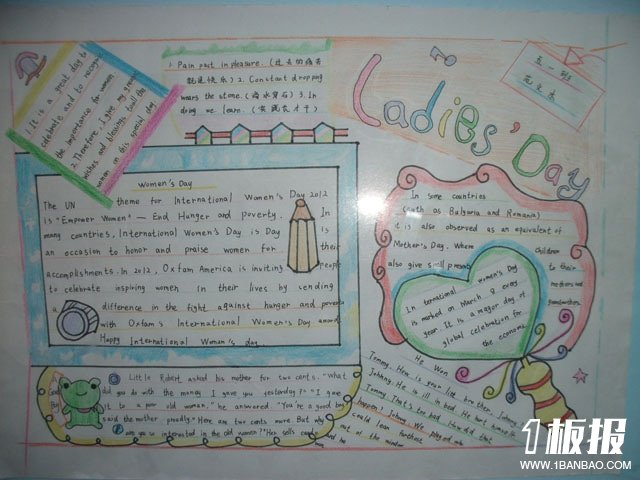 1. It is a great day to
celebrate and to recognize
the importance for women
2. Therefore, I give my great
wishes and blessings to all the
women on this special day
1. Pain past in pleasure. (过去的痛苦
就是快乐) 2. Constant dropping
wears the stone. (滴水穿石) 3. In
doing we learn. (实践长才干)
Ladies' Day
五一班
Women's Day
The UN theme for International Women's Day 2012
is "Empower Women" — End Hunger and poverty. In
many countries, International Women's Day is Day is
an occasion to honor and praise women for their
accomplishments. In 2012, Oxfam America is inviting people
to celebrate inspiring women in their lives by sending
a difference in the fight against hunger and poverty
with Oxfam's International Women's Day award.
Happy International Women's day
In some countries
(such as Bulgaria and Romania)
it is also observed as an equivalent of
Mother's Day. Where children
also give small presents to their
mothers and
grandmothers.
International women's Day
is marked on March 8 every
year. It is a major day of
global celebration for
the economic
Little Robert asked his mother for two cents. "What
did you do with the money I gave you yesterday?" "I gave
it to a poor old woman," he answered. "You're a good boy"
said the mother proudly. "Here are two cents more. But why
are you so interested in the old woman?" "Her sells candy
He Won
Tommy: Here is your little brother, Johnny
Johnny: He is ill in bed. He hurt himself
Tommy: That's too bad. How did that
happen? Johnny: We played who
could lean furthest
out of the window
and he
1板报
WWW.1BANBAO.COM